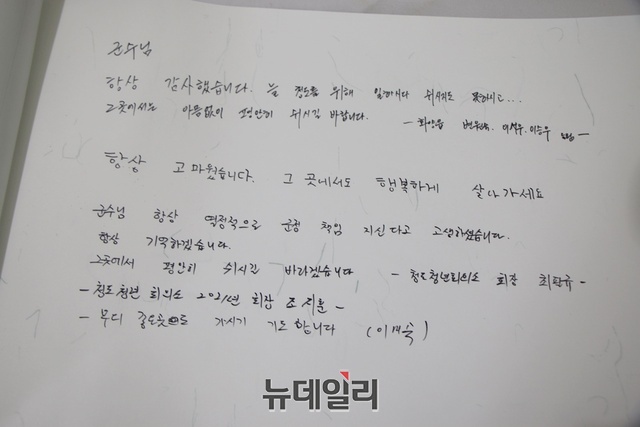 군수님
항상 감사했습니다. 늘 청도를 위해 일하시다 쉬지도 못하시고...
그곳에서는 아픔없이 편안히 쉬시길 바랍니다.
- 화양읍 이승우 -
항상 고마웠습니다. 그 곳에서도 행복하게 살아가세요
군수님 항상 열정적으로 군정 책임 지신다고 고생하셨습니다.
항상 기억하겠습니다.
그곳에서 편안히 쉬시길 바라겠습니다 - 청도청년회의소 회장 최환규 -
- 청도 청년 회의소 2021년 회장 조지훈 -
- 부디 좋은곳으로 가시기 기도합니다 (이재욱)
뉴데일리